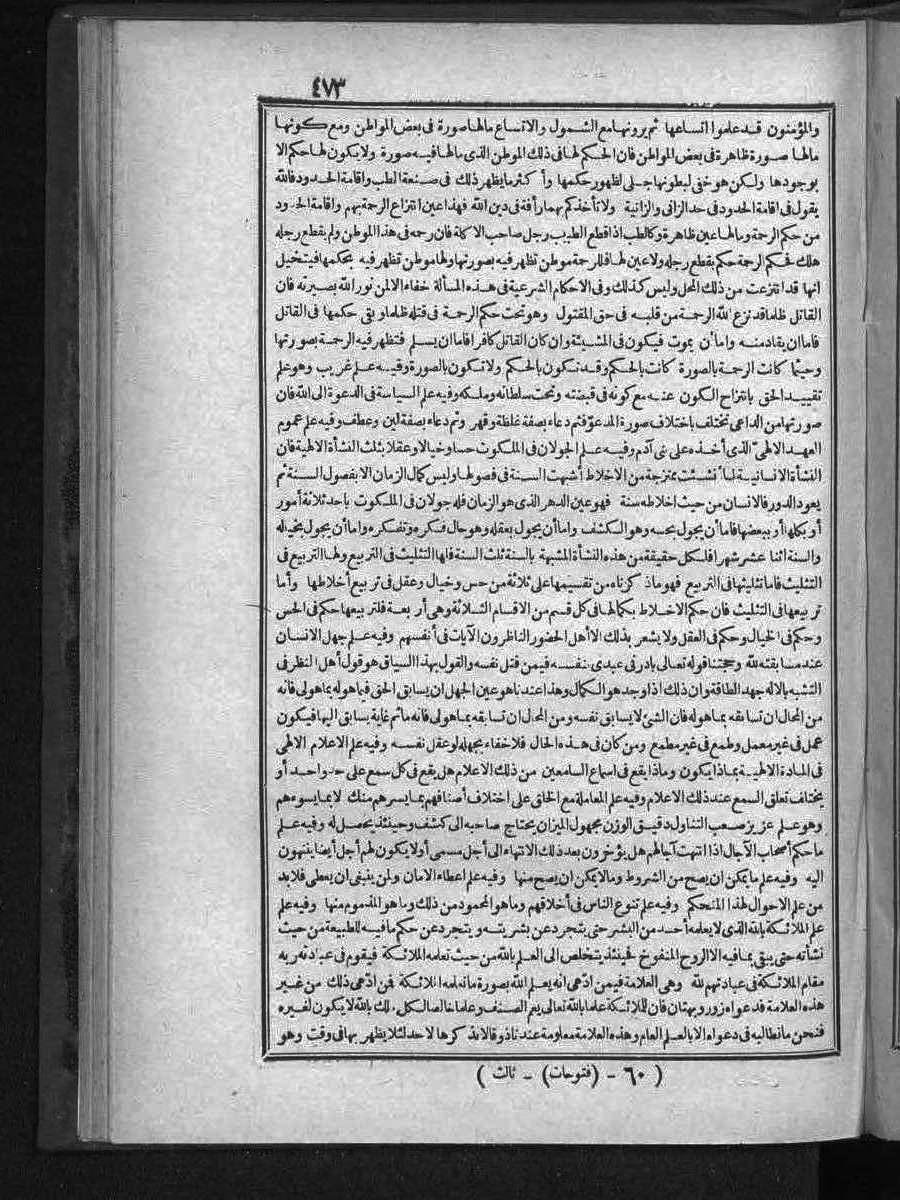 ٤٧٣
والمؤمنون قد علموا اتساعها ثم يرونها مع الشمول والاتساع مالها صورة فى بعض المواطن ومع كونها
مالها صورة ظاهرة فى بعض المواطن فان الحكم لها فى ذلك الموطن الذى مالها فيه صورة ولا يكون لها حكم الا
بوجودها ولكن هو خفى لبطونها جلى لظهور حكمها وأكثر ما يظهر ذلك فى صنعة الطب واقامة الحدود فالله
يقول فى اقامة الحدود فى حد الزانى والزانية ولا تأخذكم بهما رأفة فى دين الله فهذا عين انتزاع الرحمة بهم واقامة الحدود
من حكم الرحمة وما لها عين ظاهرة وكالطب اذا قطع الطبيب رجل صاحب الاكلة فان رحمه فى هذا الموطن ولم يقطع رجله
هلك فحكم الرحمة حكم بقطع رجله ولا عين لها فللرحمة موطن تظهر فيه بصورتها ولها موطن تظهر فيه بحكمها فيتخيل
انها قد انتزعت من ذلك المحل وليس كذلك وفى الاحكام الشرعية فى هذه المسألة خفاء الا لمن نور الله بصيرته فان
القاتل ظلما قد نزع الله الرحمة من قلبه فى حق المقتول وهو تحت حكم الرحمة فى قتله ظلما وبقى حكمها فى القاتل
فاما ان يقاد منه واما أن يموت فيكون فى المشيئة وان كان القاتل كافرا فاما ان يسلم فتظهر فيه الرحمة بصورتها
وحيثما كانت الرحمة بالصورة كانت بالحكم وقد تكون بالحكم ولا تكون بالصورة وفيه علم غريب وهو علم
تقييد الحق بانتزاح الكون عنه مع كونه فى قبضته وتحت سلطانه وملكه وفيه علم السياسة فى الدعوة الى الله فان
صورتها من الداعى تختلف باختلاف صورة المدعو فثم دعاء بصفة غلظة وقهر وثم دعاء بصفة لين وعطف وفيه علم عموم
العهد الالهى الذى أخذه على بنى آدم وفيه علم الجولان فى الملكوت حسا وخيالا وعقلا بثلث النشأة الالهية فان
النشأة الانسانية لما نشئت ممتزجة من الاخلاط أشبهت السنة فى فصولها وليس كمال الزمان الا بفصول السنة ثم
يعود الدور فالانسان من حيث اخلاطه سنة فهو عين الدهر الذى هو الزمان فله جولان فى الملكوت باحد ثلاثة أمور
أو بكلها أو ببعضها فاما أن يجول بحسه وهو الكشف واما أن يجول بعقله وهو حال فكره وتفكره واما أن يجول بخياله
والسنة اثنا عشر شهرا فلكل حقيقة من هذه النشأة المشبهة بالسنة ثلث السنة فلها التثليث فى التربيع ولها التربيع فى
التثليث فاما تثليثها فى التربيع فهو ما ذكرناه من تقسيمها على ثلاثة من حس وخيال وعقل فى تربيع أخلاطها وأما
تربيعها فى التثليث فان حكم الاخلاط بكمالها فى كل قسم من الاقسام الثلاثة وهى أربعة فلتربيعها حكم فى الحس
وحكم فى الخيال وحكم فى العقل ولا يشعر بذلك الا أهل الحضور الناظرون الآيات فى أنفسهم وفيه علم جهل الانسان
عند مسابقته لله وحجتنا قوله تعالى بادرنى عبدى بنفسه فيمن قتل نفسه والقول بهذا السياق هو قول أهل النظر فى
التشبه بالاله جهد الطاقة وان ذلك اذا وجد هو الكمال وهذا عندنا هو عين الجهل ان يسابق الحق فيما هو له بما هو لى فانه
من المحال ان تسابقه بما هو له فان الشئ لا يسابق نفسه ومن المحال ان تسابقه بما هو لى فانه ما ثم غاية يسابق اليها فيكون
عمل فى غير معمل وطمع فى غير مطمع ومن كان فى هذه الحال فلا خفاء بجهله لو عقل نفسه وفيه علم الاعلام الالهى
فى المادة الالهية بماذا يكون وماذا يقع فى اسماع السامعين من ذلك الاعلام هل يقع فى كل سمع على حد واحد أو
يختلف تعلق السمع عند ذلك الاعلام وفيه علم المعاملة مع الخلق على اختلاف أصنافهم بما يسرهم منك لا بما يسوءهم
وهو علم عزيز صعب التناول دقيق الوزن مجهول الميزان يحتاج صاحبه الى كشف وحينئذ يحصل له وفيه علم
ما حكم أصحاب الآجال اذا انتهت آجالهم هل يؤخرون بعد ذلك الانتهاء الى أجل مسمى أو لا يكون لهم أجل أيضا ينتهون
اليه وفيه علم ما يمكن ان يصح من الشروط وما لا يمكن ان يصح منها وفيه علم اعطاء الامان ولمن ينبغى ان يعطى فلابد
من علم الاحوال لهذا المتحكم وفيه علم تنوع الناس فى أخلاقهم وما هو المحمود من ذلك وما هو المذموم منها وفيه علم
علم الملائكة بالله الذى لا يعلمه أحد من البشر حتى يتجرد عن بشريته ويتجرد عن حكم ما فيه للطبيعة من حيث
نشأته حتى يبقى بما فيه الا الروح المنفوخ فحينئذ يتخلص الى العلم بالله من حيث تعلمه الملائكة فيقوم فى عبادته ربه
مقام الملائكة فى عبادتهم لله وهى العلامة فيمن ادّعى انه يعلم الله بصورة ما تعلمه الملائكة فمن ادّعى ذلك من غير
هذه العلامة فدعواه زور وبهتان فان للملائكة علما بالله تعالى يعم الصنف وعلما خاصا لكل ملك بالله لا يكون لغيره
فنحن ما نطالبه فى دعواه الا بالعلم العام وهذه العلامة معلومة عندنا ذوقا لابد كرها لاحد لئلا يظهر بها فى وقت وهو
( ٦٠ - (فتوحات) - ثالث )